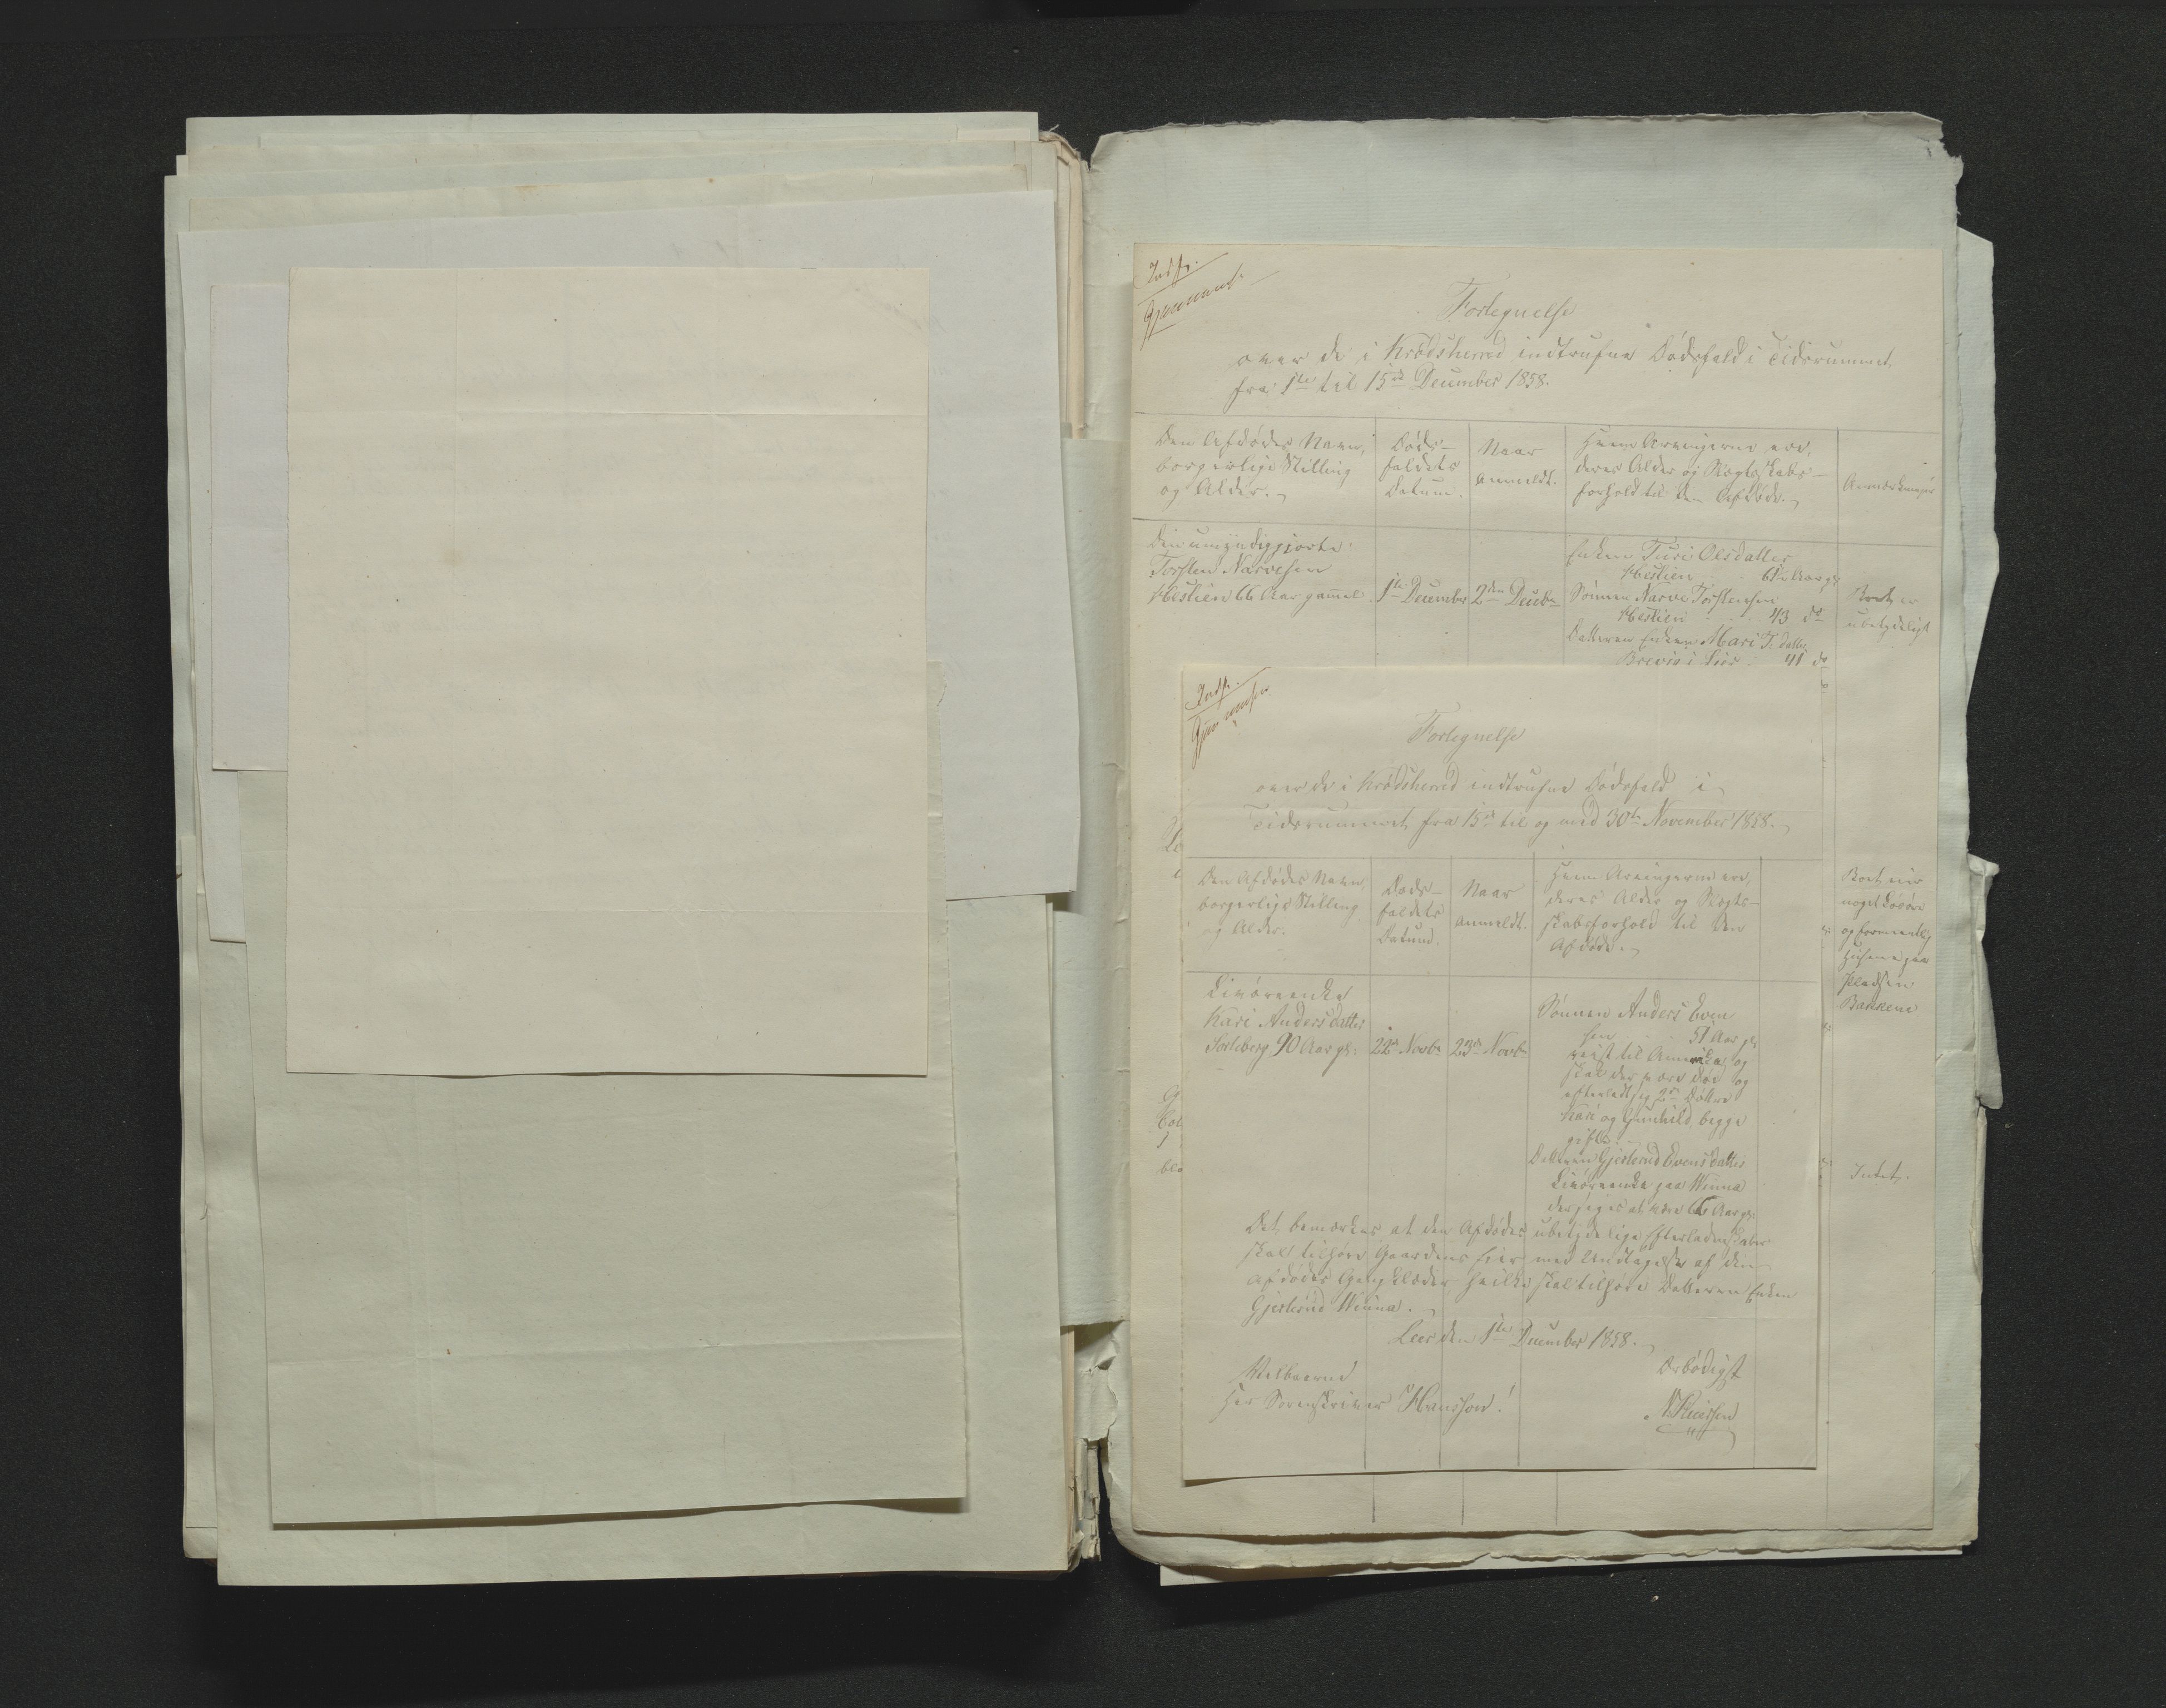 Indf.
Fortegnelse
over de i Krødsherred indtrufne Dødsfald i Tidsrummet
fra 1ste til 15de December 1858.
Den Afdødes Navn,
borgerlige Stilling
og Alder.
Døds-
faldets
Datum.
Naar
anmeldt.
Hvem Arvingerne ere,
deres Alder og Slægtskabs-
forhold til den Afdøde.
Anmærkninger
Den umyndiggjorte
Torsten Narvesen
Hestien 66 Aar gammel
1ste December
2den Decbr
Enken Turi Olsdatter
Hestien 61 Aar gl.
Sønnen Narve Torstensen
Hestien 43 do
Datteren Enken Mari T. datter
Brevig i Lier 41 do
Boet er
ubetydeligt
Boet eier
noget Løsøre
og formentlig
Husene paa
Pladsen
Bakkene
Intet.
Indf.
Fortegnelse
over de i Krødsherred indtrufne Dødsfald i
Tidsrummet fra 15de til og med 30te November 1858.
Den Afdødes Navn,
borgerlige Stilling
og Alder.
Døds-
faldets
Datum.
Naar
anmeldt.
Hvem Arvingerne ere,
deres Alder og Slægt-
skabsforhold til den
Afdøde.
Livøreenke
Kari Andersdatter
90 Aar gl:
22de Novbr
23de Novbr
Sønnen Anders Even
sen 51 Aar gl.
reist til Amerika og
skal der være død og
efterladt sig 2de Døttre
Kari og Gunhild, begge
gifte.
Datteren Gjertrud Evensdatter
Livøreenke paa Winna
der siges at være 66 Aar gl:
Det bemærkes at den Afdødes ubetydelige Efterladenskaber
skal tilhøre Gaardens Eier med Undtagelse af den
Afdødes Gangklæder hvilke skal tilhøre Datteren Enken
Gjertrud Winna.
Leer den 1ste December 1858.
Velbaarne
Her Sorenskriver Hansson!
Ærbødigst